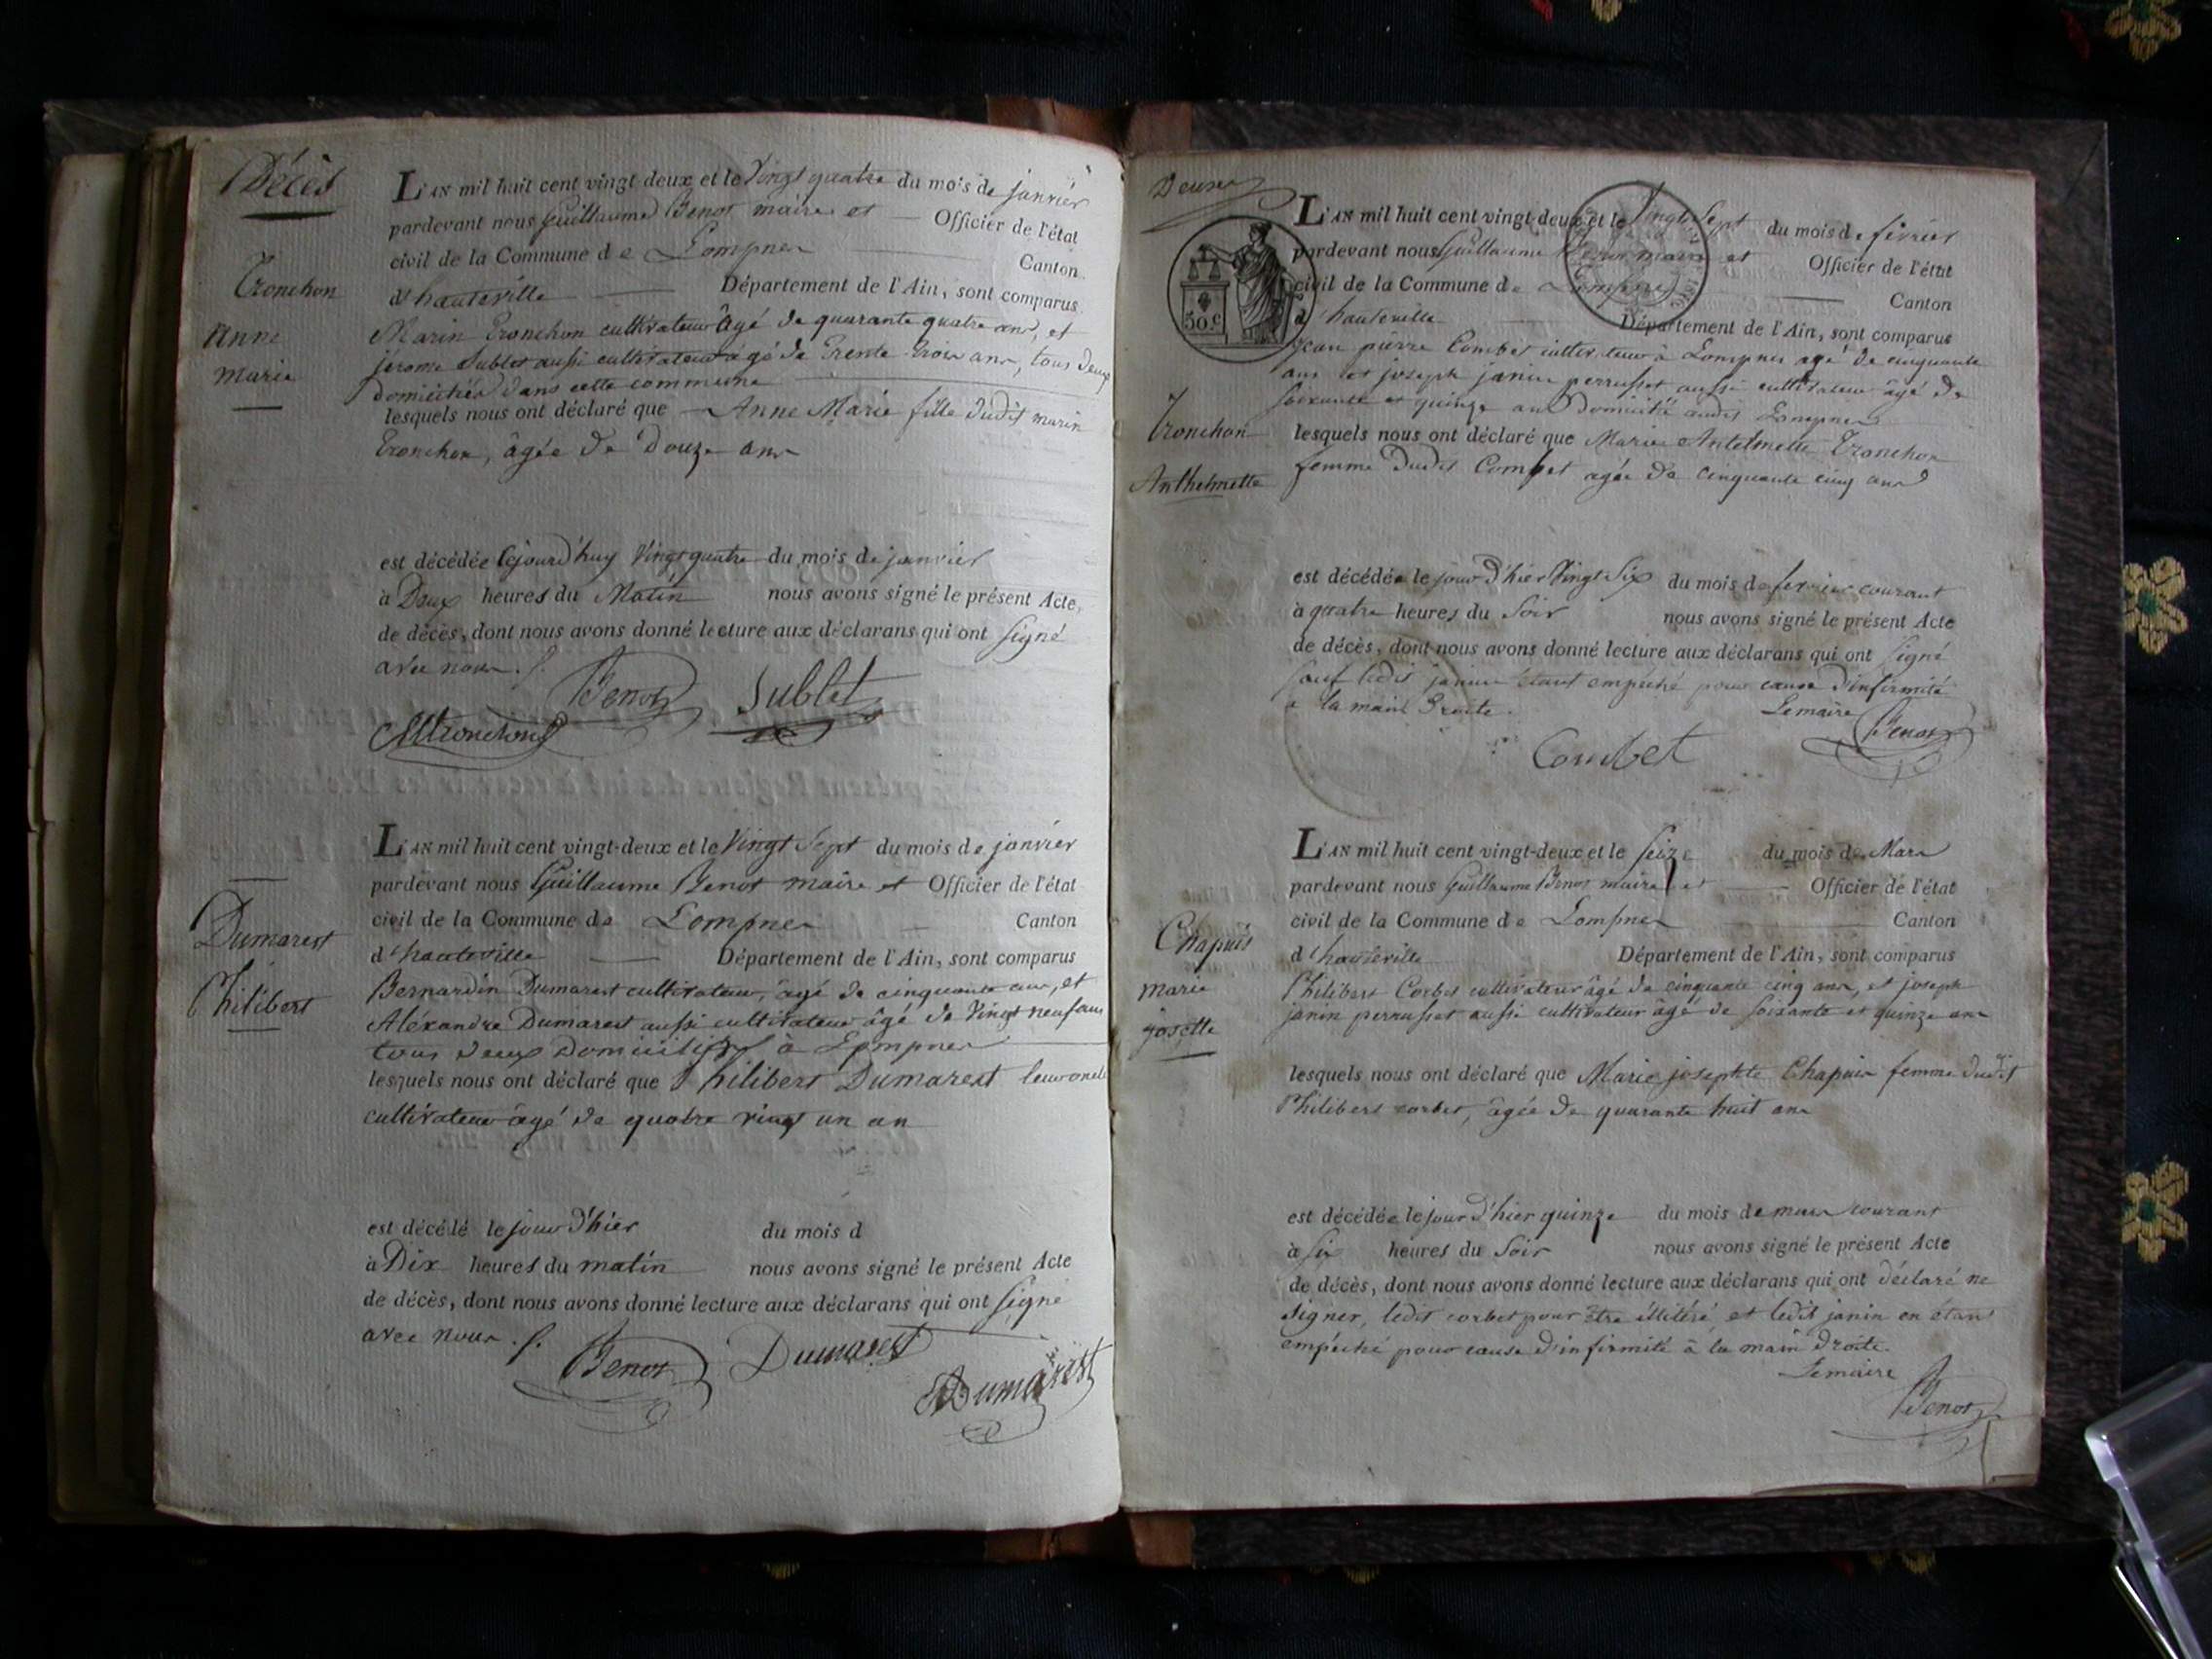 Décès
L'AN mil huit cent vingt-deux et le Vingt quatre du mois de janvier
pardevant nous Guillaume Benot maire et Officier de l'état
civil de la Commune de Lompnes Canton
d'hauteville Département de l'Ain, sont comparus
Tronchon
Anne
Marie
Marin Tronchon cultivateur âgé de quarante quatre ans, et
jérome Sublet aussi cultivateur âgé de trente trois ans, tous deux
domiciliés dans cette commune
lesquels nous ont déclaré que Anne Marie fille dudit marin
Tronchon, âgée de douze ans
est décédée Cejourd'huy Vingt quatre du mois de janvier
à Deux heures du Matin nous avons signé le présent Acte,
de décès, dont nous avons donné lecture aux déclarans qui ont signé
avec nous.
Benot Sublet
MTronchon
L'AN mil huit cent vingt-deux et le Vingt Sept du mois de janvier
pardevant nous Guillaume Benot maire et Officier de l'état
civil de la Commune de Lompnes Canton
d'hauteville Département de l'Ain, sont comparus
Dumarest
Philibert
Bernardin Dumarest cultivateur, âgé de cinquante ans, et
Aléxandre Dumarest aussi cultivateur âgé de Vingt neuf ans
tous deux domiciliés à Lompnes
lesquels nous ont déclaré que Philibert Dumarest leur oncle
cultivateur âgé de quatre vingt un an
est décédé le jour d'hier du mois d
à Dix heures du matin nous avons signé le présent Acte
de décès, dont nous avons donné lecture aux déclarans qui ont signé
avec nous.
Benot Dumarest
Dumarest
Deux
50 c
L'AN mil huit cent vingt-deux et le Vingt Sept du mois de février
pardevant nous Guillaume Benot maire et Officier de l'état
civil de la Commune de Lompnes Canton
d'hauteville Département de l'Ain, sont comparus
Jean pierre Combet cultivateur à Lompnes agé de cinquante
ans et joseph janin perrusset aussi cultivateur âgé de
soixante et quinze ans Domicilié audit Lompnes
Tronchon
Anthelmette
lesquels nous ont déclaré que Marie Antelmette Tronchon
femme dudit Combet agée de cinquante cinq ans
est décédée le jour d'hier Vingt Six du mois de fevrier courant
à quatre heures du Soir nous avons signé le présent Acte
de décès, dont nous avons donné lecture aux déclarans qui ont signé
sauf ledit janin étant empéché pour cause d'infirmité
a la main Droite.
Lemaire Benot
Combet
L'AN mil huit cent vingt-deux et le Seize du mois de Mars
pardevant nous Guillaume Benot maire et Officier de l'état
civil de la Commune de Lompnes Canton
d'hauteville Département de l'Ain, sont comparus
Chapuis
marie
josette
Philibert Corbet cultivateur âgé de cinquante cinq ans, et joseph
janin perrusset aussi cultivateur âgé de soixante et quinze ans
lesquels nous ont déclaré que Marie josephte Chapuis femme dudit
Philibert corbet, âgée de quarante huit ans
est décédée le jour d'hier quinze du mois de mars courant
à Six heures du Soir nous avons signé le présent Acte
de décès, dont nous avons donné lecture aux déclarans qui ont déclaré ne
signer, ledit corbet pour être illitéré, et ledit janin en étant
empéché pour cause d'infirmité à la main droite.
Lemaire
Benot